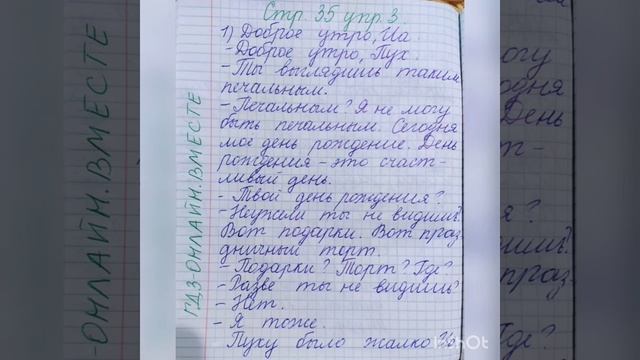 Стр. 35 упр. 3.
1) Доброе утро, Иа.
- Доброе утро, Пух.
- Ты выглядишь таким
печальным.
- Печальным? Я не могу
быть печальным. Сегодня
мое день рождение. День
рождения - это счаст-
ливый день.
- Твой день рождения?
- Неужали ты не видишь?
Вот подарки. Вот праз-
дничный торт.
- Подарки? Торт? Где?
- Разве ты не видишь?
- Нет.
- Я тоже.
Пуху было жалко
ГДЗ-ОНЛАЙН. ВМЕСТЕ